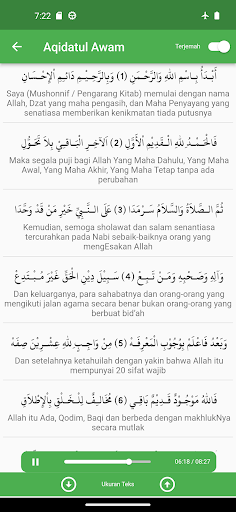 7:22
Aqidatul Awam
Terjemah
أَبْدَأُ بِاسْمِ اللهِ وَالرَّحْمَنِ (1) وَبِالرَّحِيْمِ دَائِمِ اْلإِحْسَانِ
Saya (Mushonnif / Pengarang Kitab) memulai dengan nama
Allah, Dzat yang maha pengasih, dan Maha Penyayang yang
senatiasa memberikan kenikmatan tiada putusnya
فَالْحَمْدُ للهِ الْقَدِيْمِ اْلأَوَّلِ (2) اَلآخِرِ الْبَاقِيْ بِلاَ تَحَوُّلِ
Maka segala puji bagi Allah Yang Maha Dahulu, Yang Maha
Awal, Yang Maha Akhir, Yang Maha Tetap tanpa ada
perubahan
ثُمَّ الصَّلاَةُ وَالسَّلاَمُ سَرْمَدَا (3) عَلَى النَّبِيِّ خَيْرِ مَنْ قَدْ وَحَّدَا
Kemudian, semoga sholawat dan salam senantiasa
tercurahkan pada Nabi sebaik-baiknya orang yang
mengEsakan Allah
وَآلِهِ وَصَحْبِهِ وَمَنْ تَبِعْ (4) سَبِيْلَ دِيْنِ الْحَقِّ غَيْرَ مُبْتَدِعْ
Dan keluarganya, para sahabatnya dan orang-orang yang
mengikuti jalan agama secara benar bukan orang-orang yang
berbuat bid'ah
وَبَعْدُ فَاعْلَمْ بِوُجُوْبِ الْمَعْرِفَهْ (5) مِنْ وَاجِبٍ للهِ عِشْرِيْنَ صِفَهْ
Dan setelahnya ketahuilah dengan yakin bahwa Allah itu
mempunyai 20 sifat wajib
فَاللهُ مَوْجُوْدٌ قَدِيْمٌ بَاقِي (6) مُخَالِفٌ لِلْخَلْقِ بِاْلإِطْلاَقِ
Allah itu Ada, Qodim, Baqi dan berbeda dengan makhlukNya
secara mutlak
06:18 / 08:27
Ukuran Teks